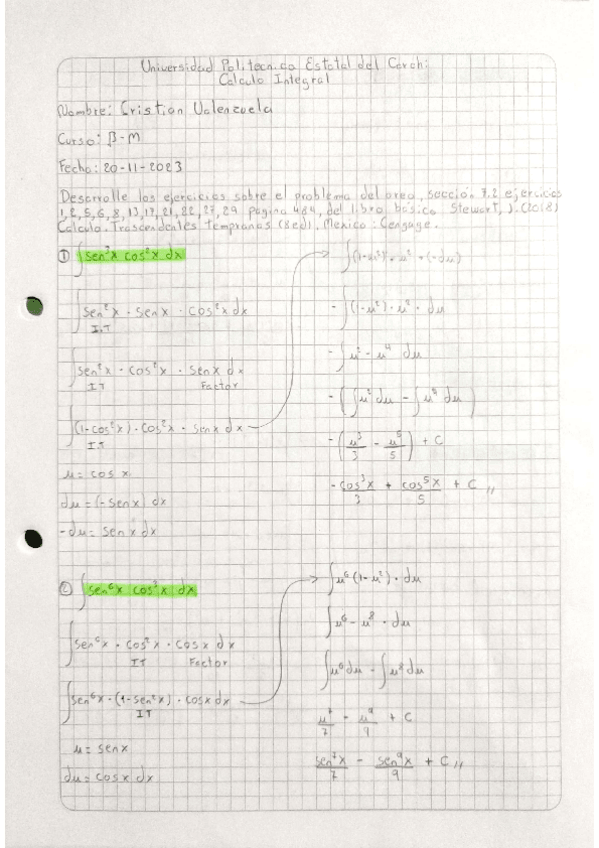 Universidad Politecnica Estatal del Carchi
Calculo Integral
Nombre: Cristian Valenzuela
Curso: B-M
Fecha: 20-11-2023
Desarrolle los ejercicios sobre el problema del area, sección 7.2 ejercicios
1,2,5,6,8,13,17,21,22,27,29 pagina 484, del libro básico Stewart, J. (2018)
Calculo. Trascendentes tempranas (8ed), Mexico: Cengage.
① ∫ sen³x cos²x dx
∫ sen²x · senx · cos²x dx
I.T
∫ sen²x · cos²x · senx dx
I.T Factor
∫ (1-cos²x) · cos²x · senx dx
I.T
u = cos x
du = (-senx) dx
-du = senx dx
∫ (1-u²) · u² · (-du)
- ∫ (1-u²) · u² · du
- ∫ u² - u⁴ du
- ( ∫ u² du - ∫ u⁴ du )
- ( u³/3 - u⁵/5 ) + C
- cos³x/3 + cos⁵x/5 + C //
② ∫ sen⁶x cos³x dx
∫ sen⁶x · cos²x · cosx dx
I.T Factor
∫ sen⁶x · (1-sen²x) · cosx dx
I.T
u = senx
du = cosx dx
∫ u⁶ (1-u²) · du
∫ u⁶ - u⁸ · du
∫ u⁶ du - ∫ u⁸ du
u⁷/7 - u⁹/9 + C
sen⁷x/7 - sen⁹x/9 + C //